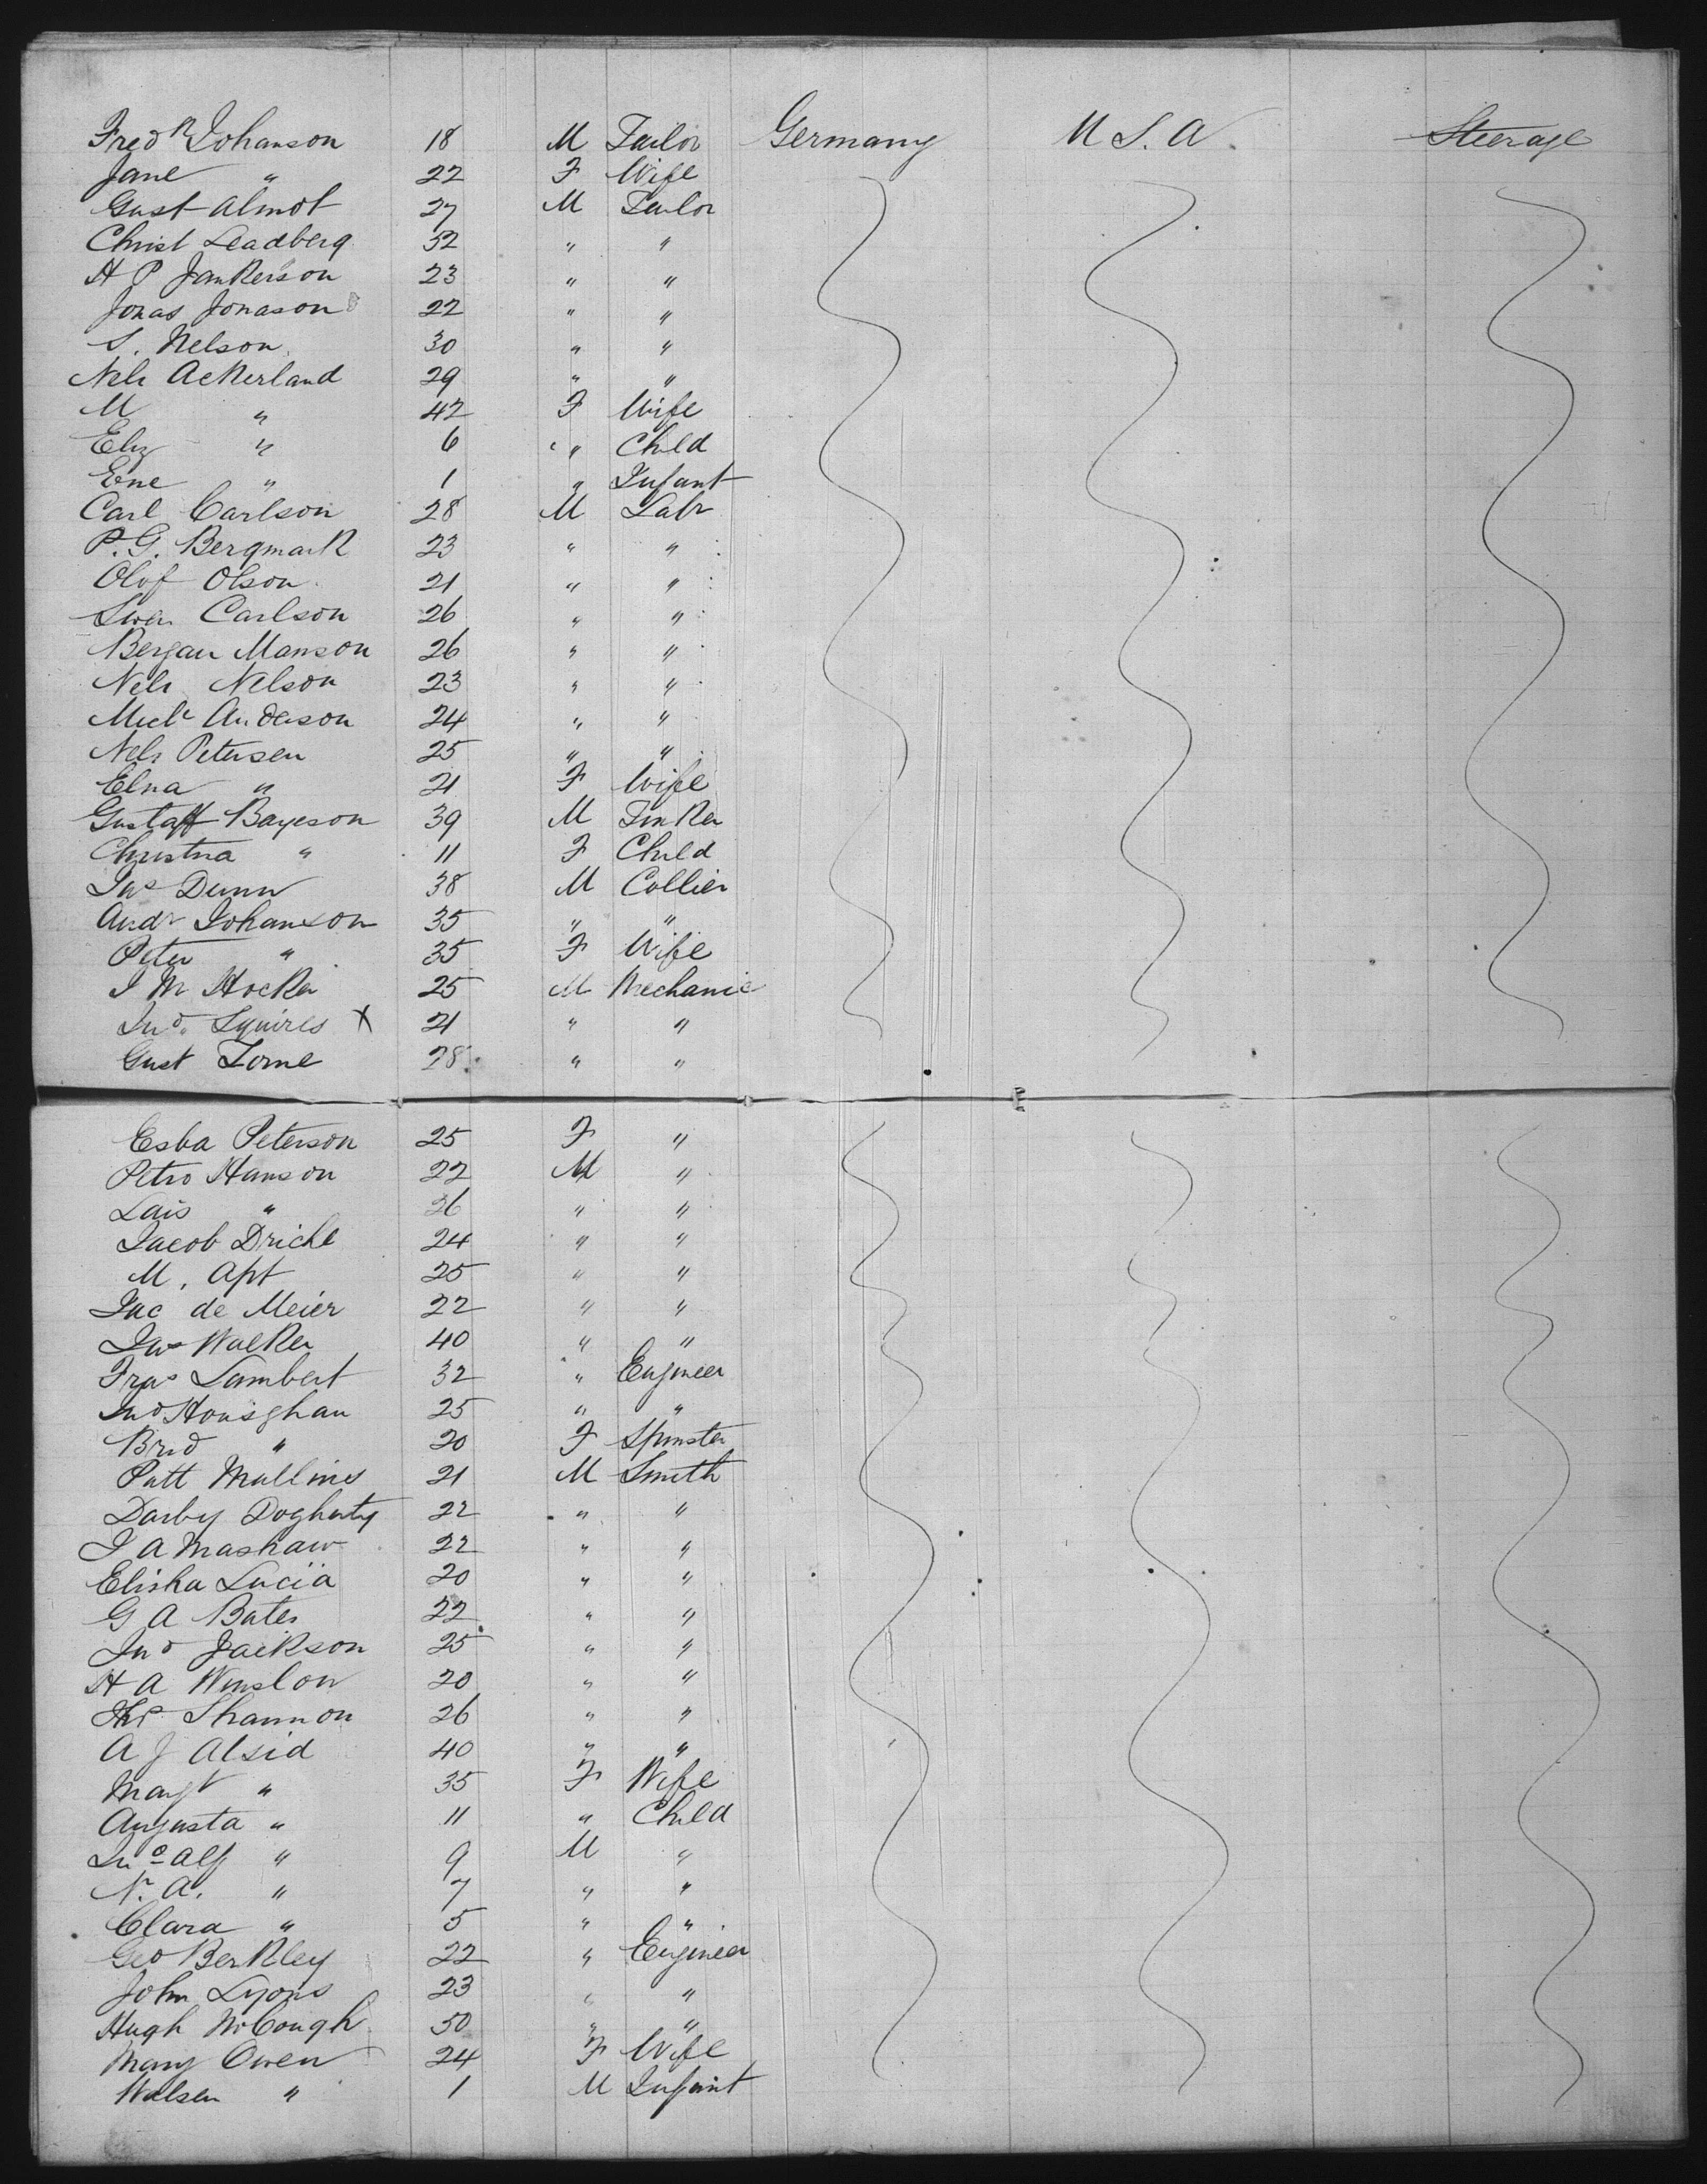 Fredk Johanson 18 M Tailor Germany U.S.A. Steerage
Jane " 22 F Wife
Gust Almot 27 M Tailor
Christ Leadberg 32 " "
H P Jankerson 23 " "
Jonas Jonason 22 " "
S. Nelson 30 " "
Nels Ackerland 29 " "
M " 42 F Wife
Eliz " 6 " Child
Ene " 1 " Infant
Carl Carlson 28 M Labr
P. G. Bergmark 23 " "
Olof Olson 21 " "
Swen Carlson 26 " "
Bergau Manson 26 " "
Nels Nelson 23 " "
Michl Anderson 24 " "
Nels Petersen 25 " "
Elna " 21 F Wife
Gustaff Bayeson 39 M Tinker
Christna " 11 F Child
Jas Dunn 38 M Collier
Andr Johanson 35 " "
Peter " 35 F Wife
J M Hocker 25 M Mechanic
Jno. Squires X 21 " "
Gust Torne 28 " "
Esba Peterson 25 F "
Petro Hanson 22 M "
Lais " 26 " "
Jacob Driche 24 " "
M. Apt 25 " "
Jac de Meier 22 " "
Jas Walker 40 " "
Fras Lambert 32 " Engineer
Jno Housghan 25 " "
Brid " 20 F Spinster
Patt Mullins 21 M Smith
Darby Dogherty 22 " "
J A Mashaw 22 " "
Elisha Lucia 20 " "
G A Bates 22 " "
Jno Jackson 25 " "
H A Winslow 20 " "
Ths Shannon 26 " "
A J Alsid 40 " "
Margt " 35 F Wife
Augusta " 11 " Child
Jno Alf " 9 M "
N. A. " 7 " "
Clara " 5 " "
Geo Berkley 22 " Engineer
John Lyons 23 " "
Hugh McCough 50 " "
Mary Owen 24 F Wife
Walsen " 1 M Infant